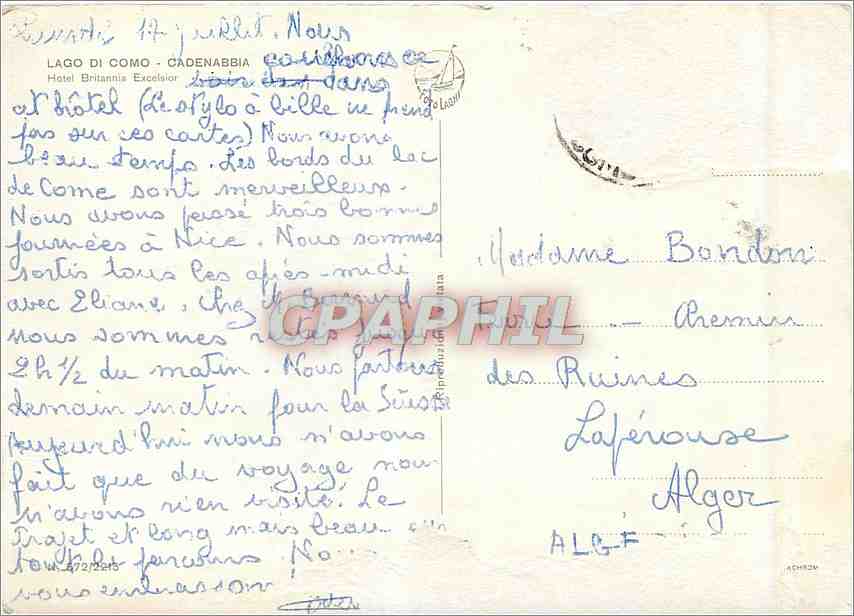 17 juillet. Nous
LAGO DI COMO - CADENABBIA
Hotel Britannia Excelsior
couchons ce
soir dans
et hôtel (Le stylo à bille ne prend
pas sur ces cartes) Nous avons
beau temps. Les bords du lac
de Come sont merveilleux.
Nous avons passé trois bonnes
journées à Nice. Nous sommes
sortis tous les après-midi
avec Eliane, chez
nous sommes
2h 1/2 du matin. Nous partons
demain matin pour la Suisse
Aujourd'hui nous n'avons
fait que du voyage nous
n'avons rien visité. Le
trajet et long mais beau
tout le parcours
vous embrassons
FOTO LAGHI
Riproduzione vietata
N. 572/2213
CPAPHIL
Madame Bondon
Chemin
des Ruines
Lapérouse
Alger
ALGE
ACHROM